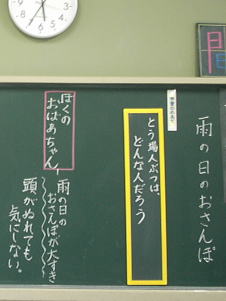 雨の日のおさんぽ
とう場人ぶつは、
どんな人だろう
ぼくの
おばあちゃん
雨の日の
おさんぽが大すき
頭がぬれても
気にしない。